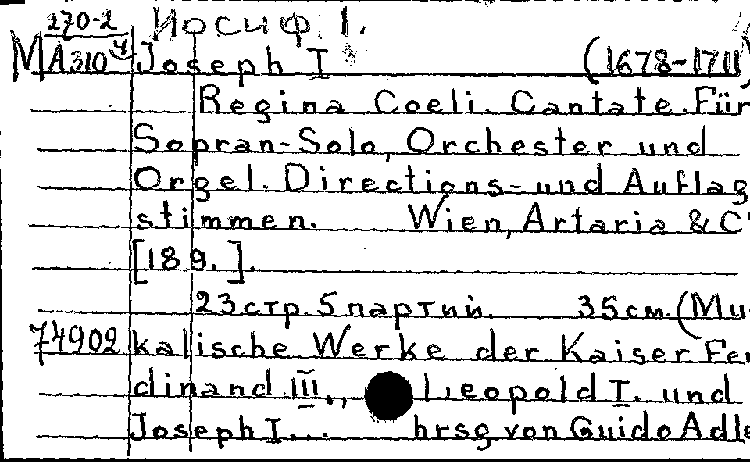 270-2 Иосиф I.
М А310 4 Joseph I (1678-1711)
Regina Coeli. Cantate. Für
Sopran-Solo, Orchester und
Orgel. Directions- und Auflag
stimmen. Wien, Artaria & C°
[189.].
23 стр. 5 партий. 35 см. (Mu-
74902 kalische Werke der Kaiser Fer
dinand III., Leopold I. und
Joseph I... hrsg von Guido Adle